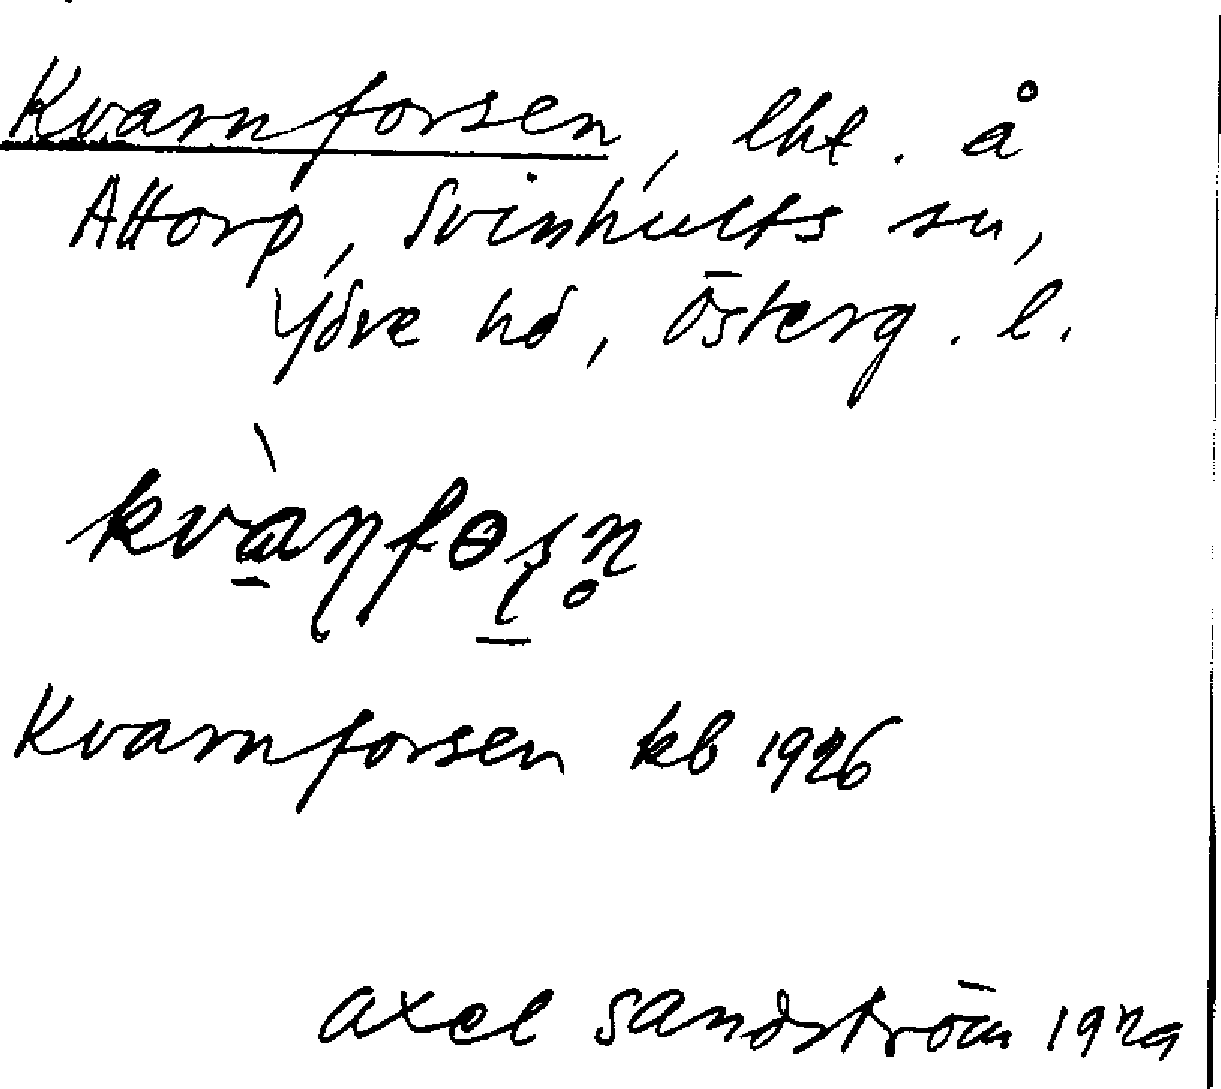 Kvarnforsen, lht. å
Attorp, Svinhults sn,
Ydre hd, Österg. l.
Kvarnforsen kb 1926
Axel Sandström 1929